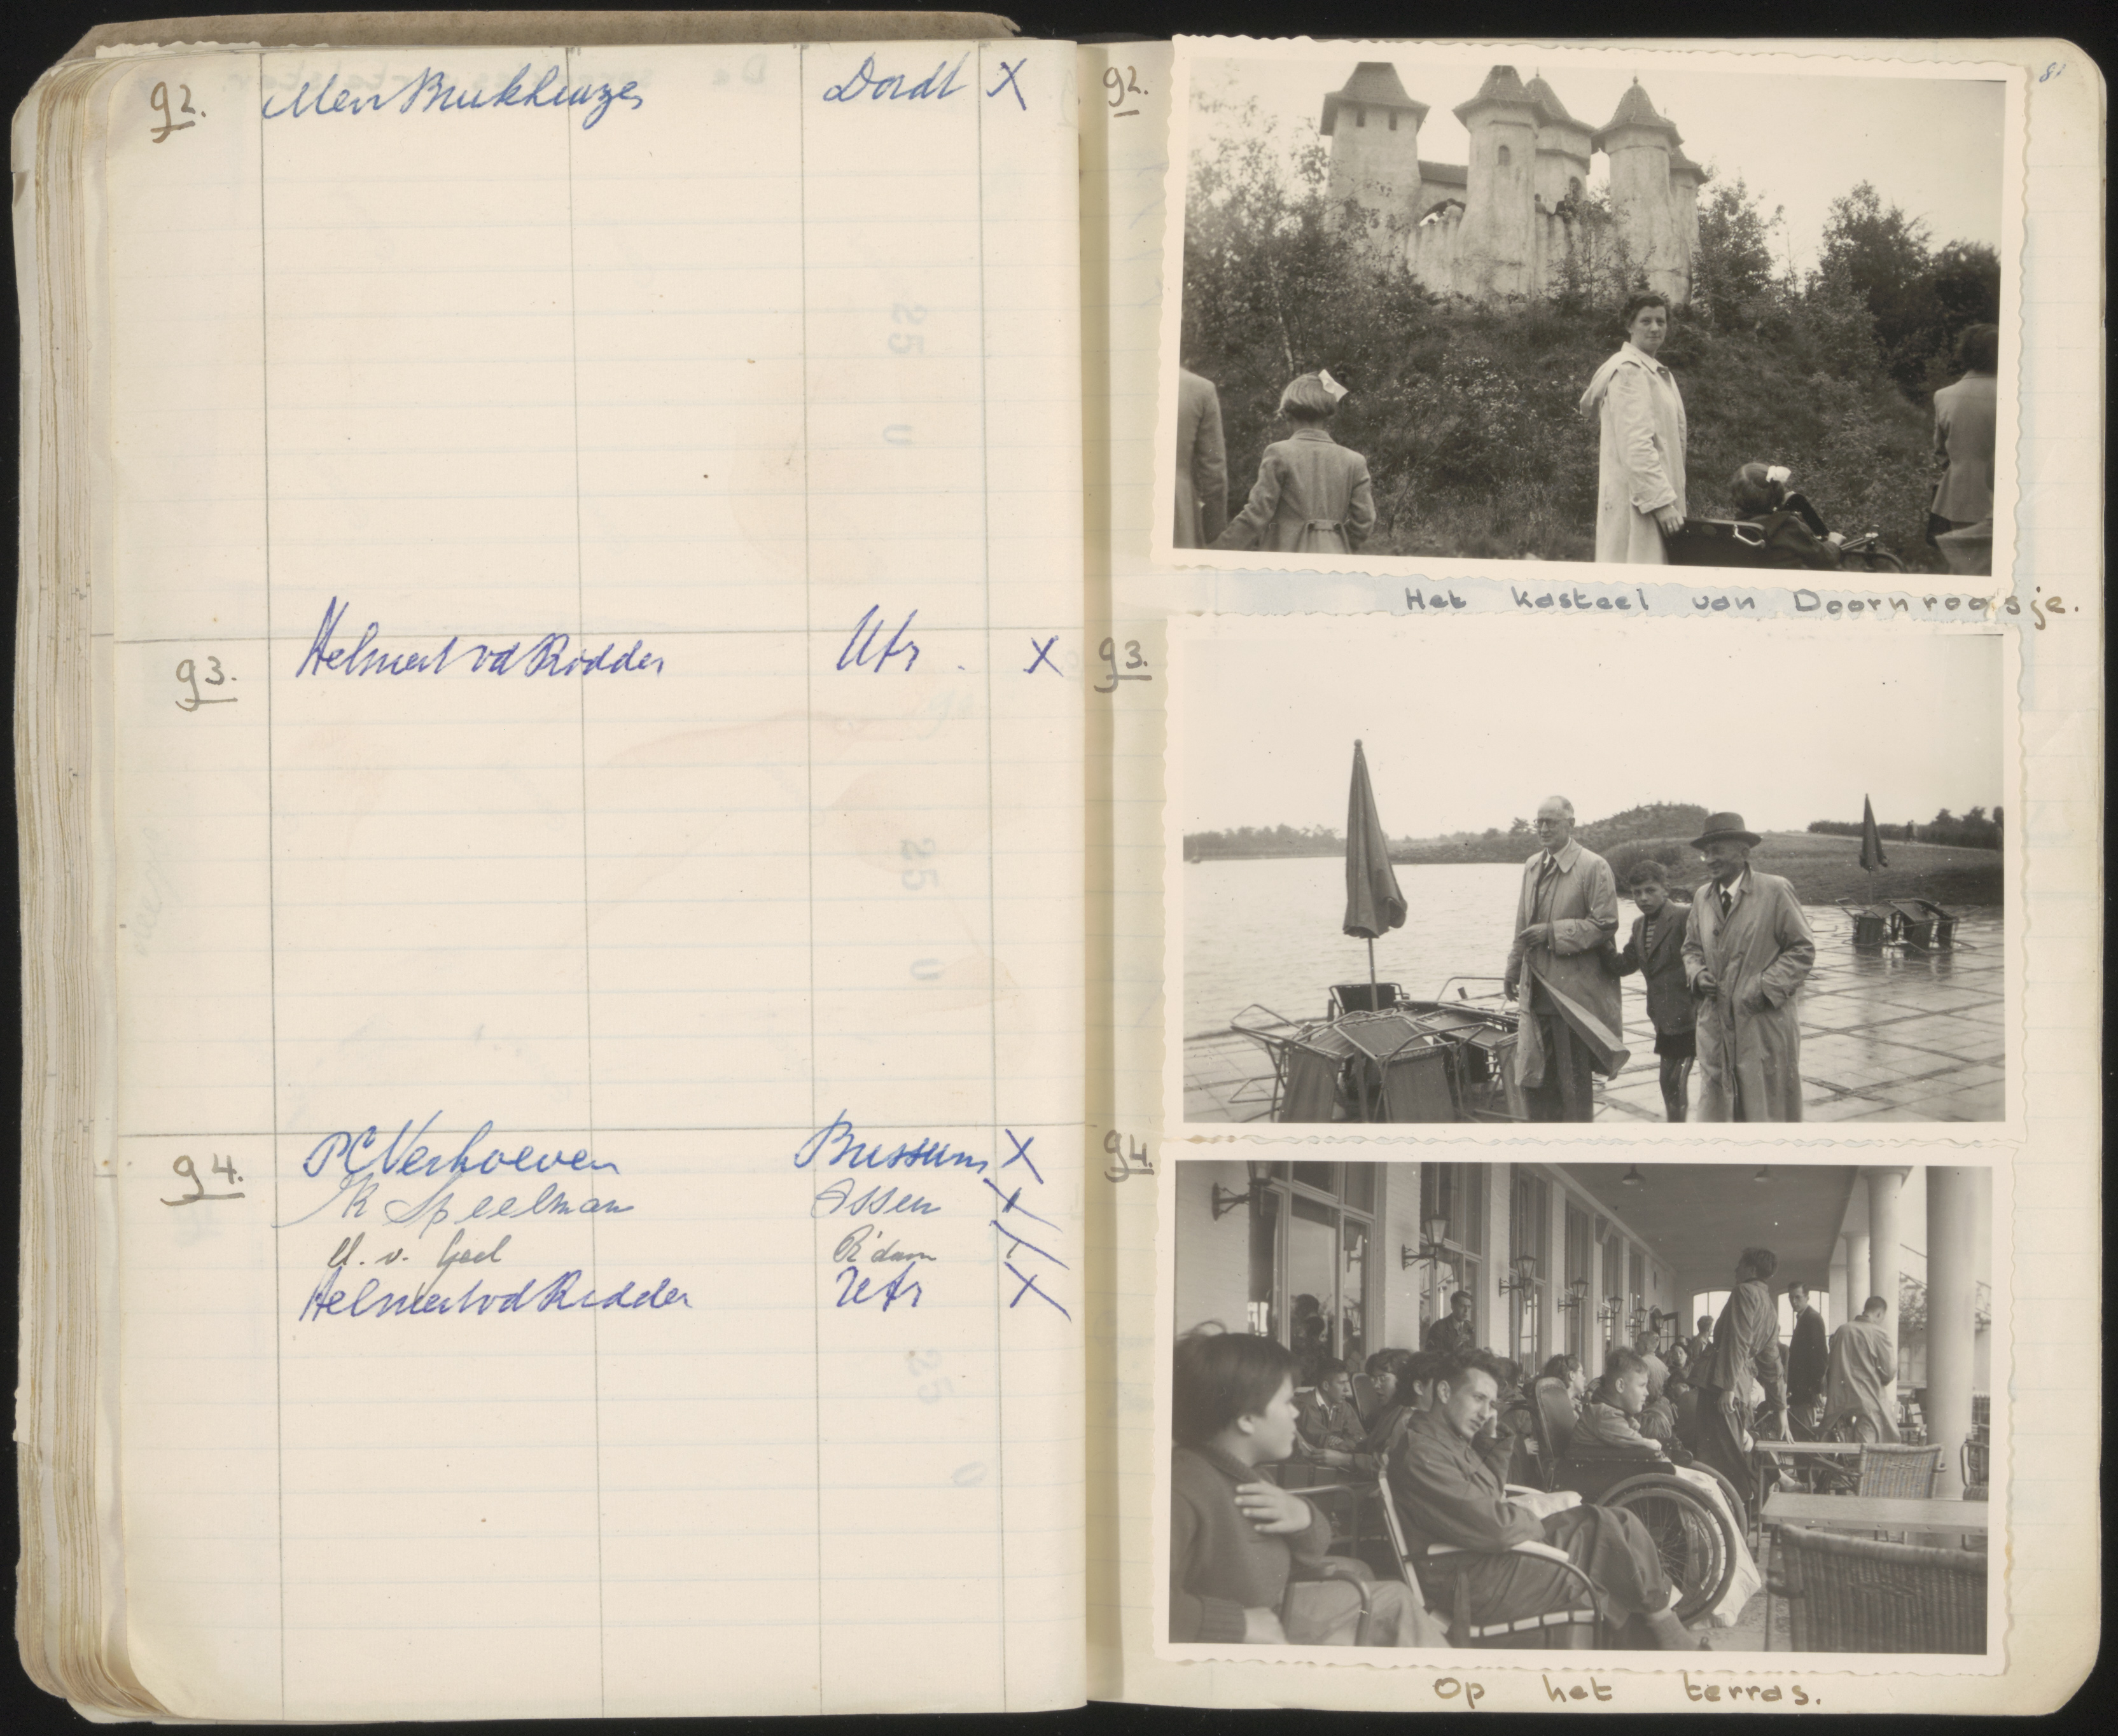 92. Dordt X
93. Helmert vd Ridder Utr. X
94. PC Verhoeven Bussum X
K Speelman Assen X
v. R'dam X
Helmert vd Ridder Utr X
92.
81
Het kasteel van Doornroosje.
93.
94.
Op het terras.